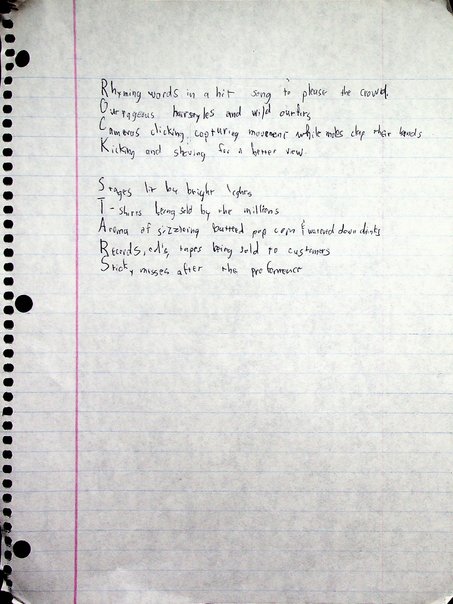 Rhyming words in a hit song to please the crowd.
Outrageous hairsyles and wild outfits
Cameras clicking, capturing movement while males clap their hands
Kicking and shoving for a better view.
Stages lit by bright lights
T-shirts being sold by the millions
Aroma of sizzlering butterd pop corn & watered down drinks
Records, cd's, tapes being sold to customers
Sticky messes after the preformence